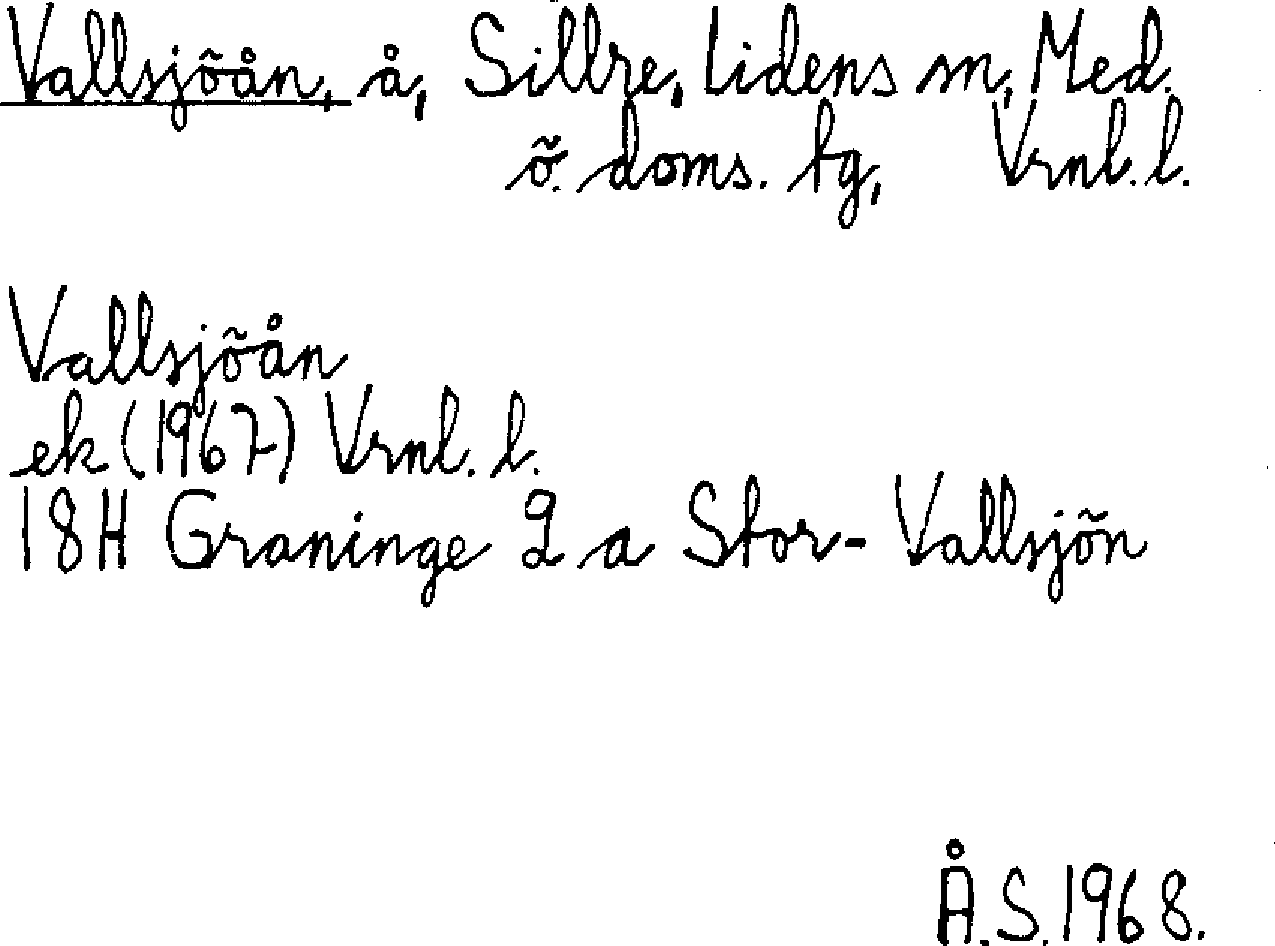 Vallsjöån, å, Sillre, Lidens sn, Med.
ö. doms. tg, Vrnl. l.
Vallsjöån
ek (1967) Vrnl. l.
18H Graninge 2 a Stor-Vallsjön
Å.S. 1968.